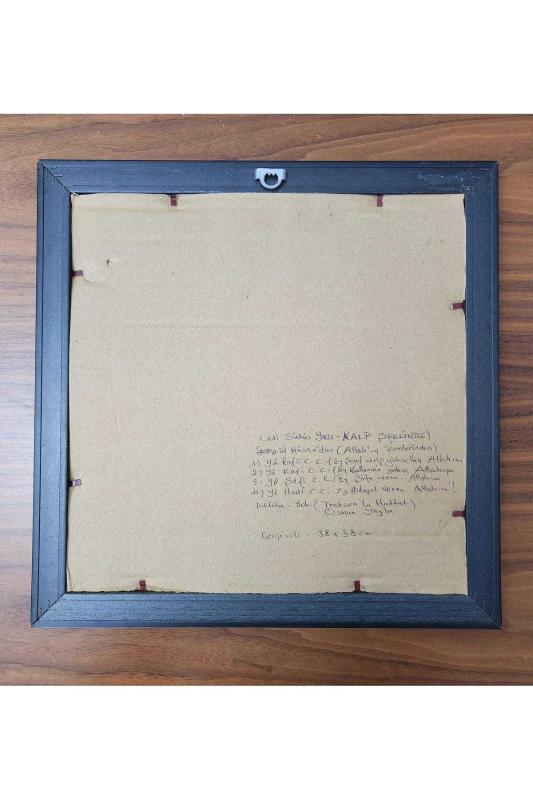 Celi Sülüs Yazı - KALP ŞEKLİNDE)
Esma-ül Hüsna'dan (Allah'ın isimlerinden)
1) Yâ Rafi C.C. (Ey Şeref verip yükselten Allahım
2) Yâ Kafi C.C. (Ey Kullarına yeten Allahım
3- Yâ Şafi C.C. (Ey Şifa veren Allahım
4) Yâ Hadi C.C. Ey Hidayet veren Allahım!)
(Trabzon'lu Hattat)
Osman
Çerçeveli - 38 x 38 cm